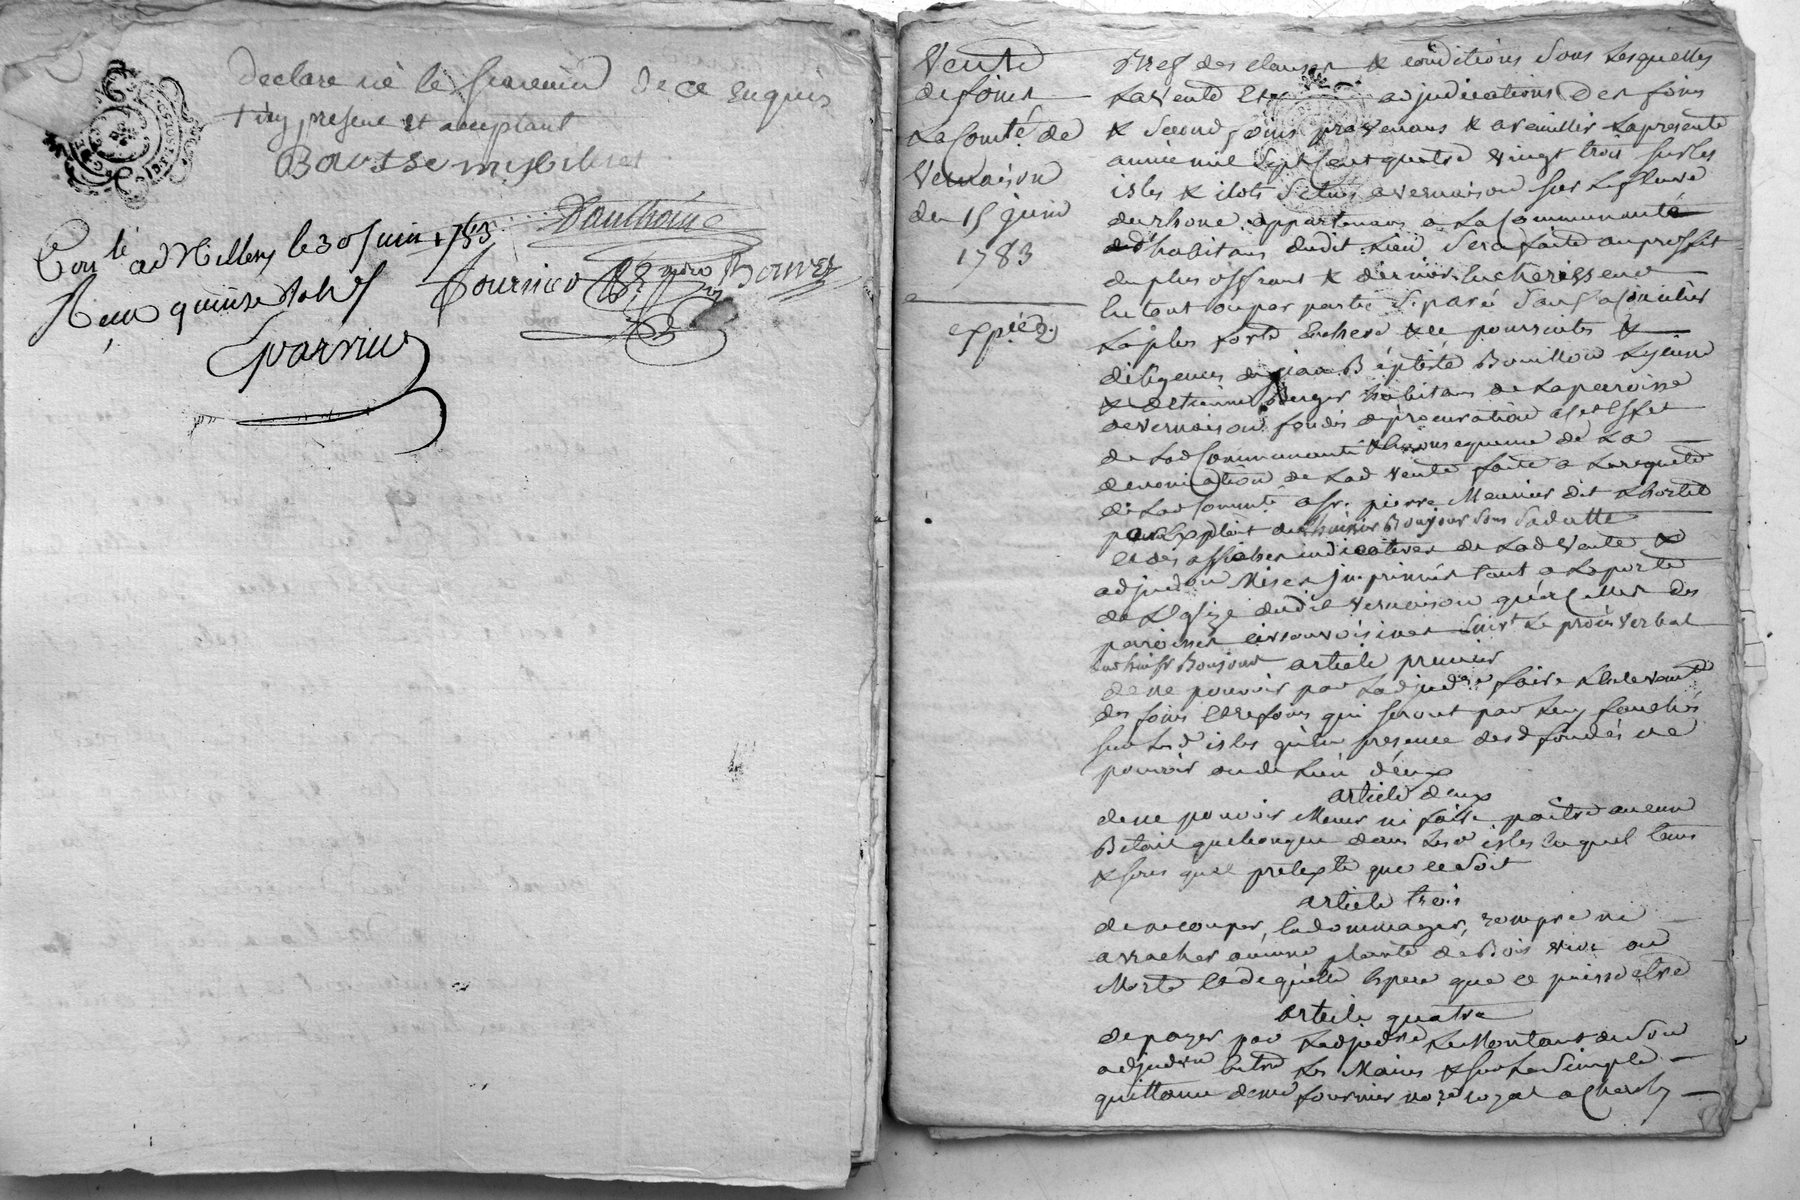 declare ne le scavoir de ce enquis
et ny presens et acceptant
Cont.lé a Millery le 30 Juin 1783
Reçu quinze sols
fournier
Bouvet
Varnius
Vente
de foins
La Comté de
Vernaison
du 15 juin
1783
expiéd.
Bref des clauses & conditions sous lesquelles
La vente & adjudications des foins
& second foins provenans & a ceuillir La presente
année mil sept cent quatre vingt trois sur les
isles & ilots scitués a vernaison sur Le fleuve
du rhone appartenans a La Communauté
d'habitans dudit Lieu sera faite au proffit
du plus offrant & dernier Encherisseur
En tout ou par partie separé sauf a joindre
La plus forte Enchere & ce poursuite &
diligences de jean Baptiste Bouillon Lyenne
& detienne Berger habitans de La paroisse
de vernaison fondés de procuration a cet Effet
de Lad Communauté & Consequence de La
denonciation de Lad vente faite a La requete
de Lad Commté a sr. pierre Meunier dit
par Exploit de Lhuissier Boujour sous sa datte
et des affiches indicatives de Lad vente &
adjudon Mises Imprimées tant a La porte
de L'Eglize dudit vernaison qu'a Celles des
paroisses circonvoisines suivt Le procès verbal
dud huissr Boujour article premier
de ne pouvoir par Ladjudre faire Enlevement
des foins Et refoins qui seront par Luy fauchés
sur Lesd isles qu'en presence desd fondés de
pouvoir ou de Lun d'eux
article deux
de ne pouvoir Mener ni faire paitre aucun
Betail quelconque dans Lesd isles En quel tems
& sous quel pretexte que ce soit
article trois
de ne couper, Endommager, rompre ni
arracher aucune plante de Bois vive ou
Morte Et de quelle Espece que ce puisse etre
article quatre
de payer par Ladjudre Le Montant de son
adjudon Entre Les Mains & sur La simple
quittance de me fournier nore royal a Charly